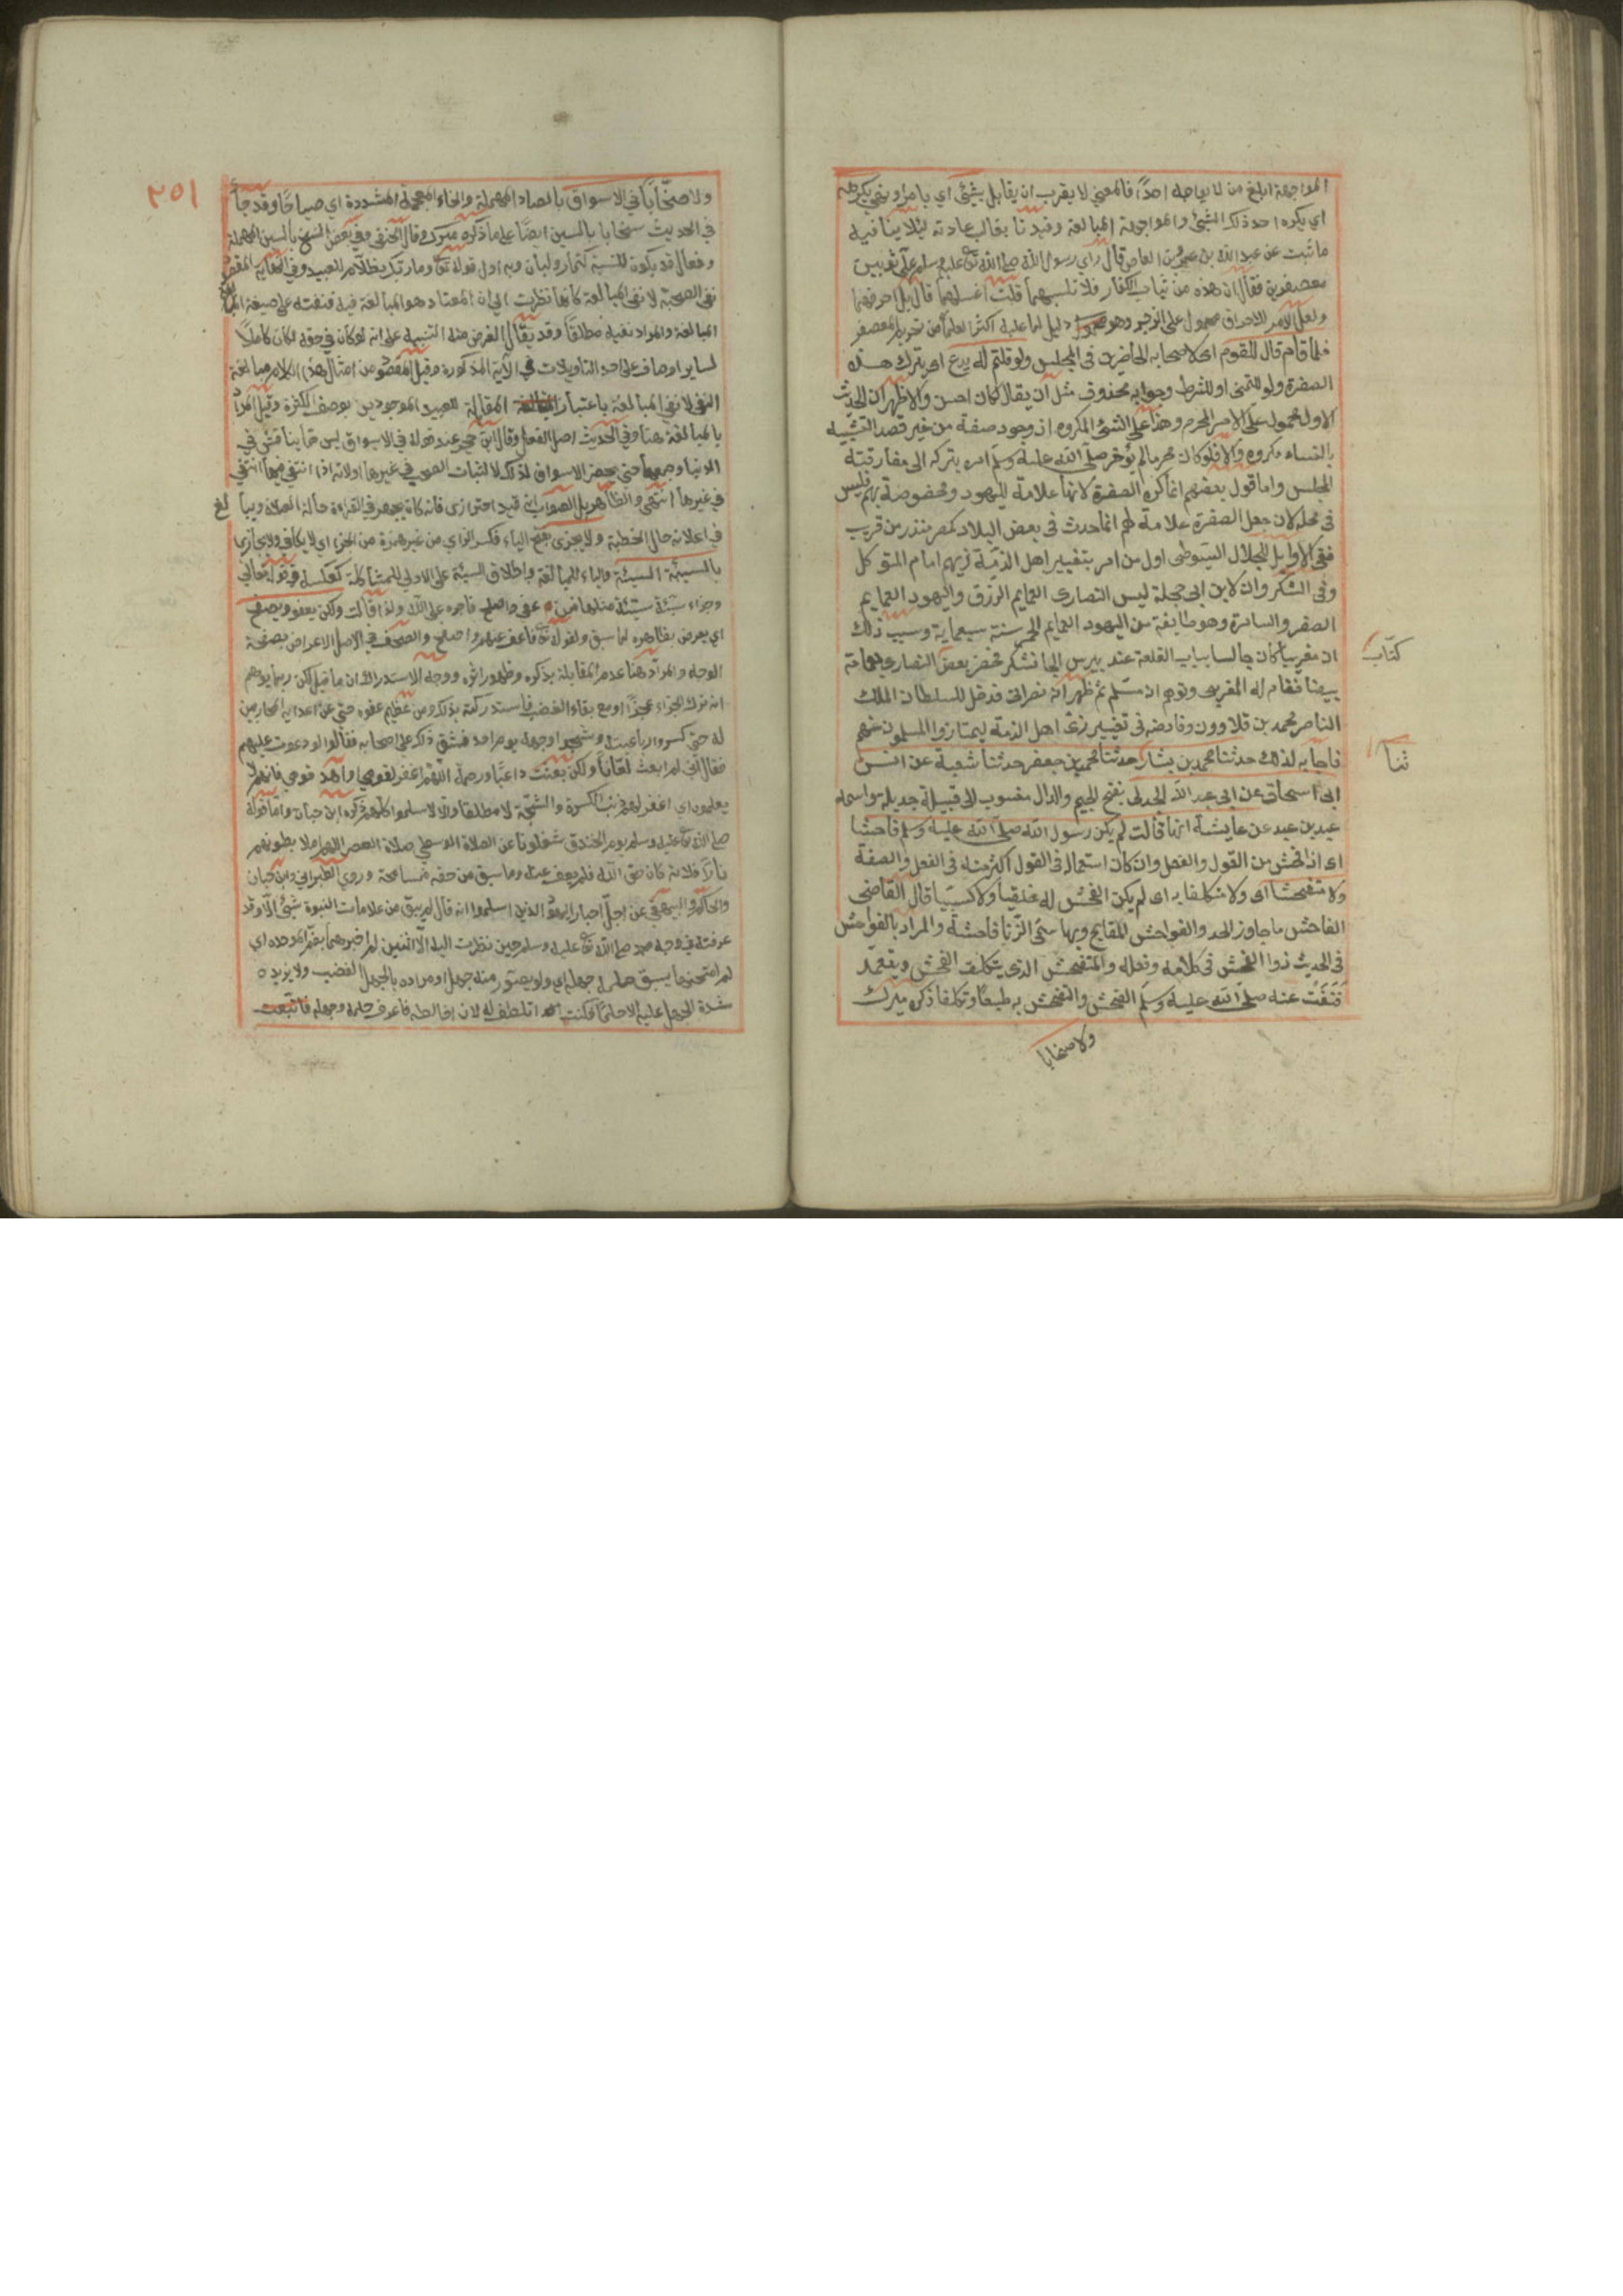 المواجهة ابلغ من لا يواجه احدًا فالمعني لا يقرب ان يقابل بشئ اي بامر او نهي يكرهه
اي يكره احد ذلك الشئ والمواجهة المبالغة وقيدنا بغالب عادته ليلا ينافيه
ما ثبت عن عبد الله بن عمرو بن العاص قال راي رسول الله صلى الله تع عليه وسلم علي ثوبين
معصفرين فقال ان هذه من ثياب الكفار فلا تلبسهما قلت اغسلهما قال بل احرقهما
ولعل الامر الاحراق محمول على الزجر وهو دليل لما عليه اكثر العلما من تحريم المعصفر
فلما قام قال للقوم اى لاصحابه الحاضرين فى المجلس ولو قلتم له يدع اى يترك هذه
الصفرة ولو للتمنى او للشرط وجوابه محذوف مثل ان يقال لكان احسن والاظهر ان الحديث
الاول محمول على الامر المحرم وهذا على الشئ المكروه اذ وجود صفة من غير قصد التشبيه
بالنساء مكروه والا فلو كان محرما لم يؤخر صلى الله عليه وسلم امره بتركه الى مفارقته
المجلس واما قول بعضهم انما كره الصفرة لانها علامة لليهود ومخصوصة بهم فليس
فى محله لان جعل الصفرة علامة لهم انما حدث فى بعض البلاد كمصر منذ زمن قريب
ففى الاوايل للجلال السيوطى اول من امر بتغيير اهل الذمة زيهم امام المتوكل
وفى السكردان لابن ابى حجلة لبس النصارى العمايم الزرق واليهود العمايم
الصفر والسامرة وهو طايفة من اليهود العمايم الحمر سنة سبعماية وسبب ذلك
ان مغربيا كان جالسا بباب القلعة عند بيبرس الجاشنكر فحضر بعض النصارى بعمامة
كتاب
بيضا فقام له المغربى وتوهم انه مسلم ثم ظهر انه نصرانى فدخل للسلطان الملك
الناصر محمد بن قلاوون وفاوضه فى تغيير زى اهل الذمة ليمتازوا المسلمون عنهم
فاجابه لذلك حدثنا محمد بن بشار حدثنا محمد بن جعفر حدثنا شعبة عن
ثنا
ابى اسحاق عن ابى عبد الله الجدلى بفتح الجيم والدال منسوب الى قبيلة جديلة واسمه
عبد بن عبد عن عايشة انها قالت لم يكن رسول الله صلى الله عليه وسلم فاحشا
اى اذ الفحش من القول والفعل وان كان استعماله فى القول اكثر منه فى الفعل والصفة
ولا متفحشا اى ولا متكلفا به اى لم يكن الفحش له خلقيا ولا كسبيا قال القاضى
الفاحش ما جاوز الحد والفواحش المقابح وبها سمى الزنا فاحشة والمراد بالفواحش
فى الحديث ذوا الفحش فى كلامه وفعله والمتفحش الذى يتكلف الفحش ويتعمد
فنفت عنه صلى الله عليه وسلم الفحش والتفحش به طبعا وتكلفا ذكره ميرك
ولا صخابا
٢٥١
ولا صخابا في الاسواق بالصاد المهملة والخاء المعجمة المشددة اي صياحًا وقد جا
في الحديث سخابا بالسين ايضا على ما ذكره ميرك وقال الحنفي وفي بعض النسخ بالسين المهملة
وفعال قد يكون للنسبة كتمار ولبان وبه اول قوله تع وما ربك بظلام للعبيد وفي المقام المقصود
نفي الصخب لا نفي المبالغة كانها نظرت الي ان المعتاد هو المبالغة فيه فنفته على صيغة
المبالغة والمراد نفيه مطلقا وقد يقال الغرض منه التنبيه على انه لو كان في حقه لكان كاملا
لساير اوصافه على احد التاويلات في الاية المذكورة وقيل المقصود من امثال هذا الكلام مبالغة
النفي لا نفي المبالغة باعتبار المقابلة للعبيد الموجودين بوصف الكثرة وقيل المراد
بالمبالغة هنا وفي الحديث اصل الفعل وقال ابن حجر عند قوله في الاسواق ليس مما ينافي في
الدنيا وجمعها حتي يحضر الاسواق لذلك لا لثبات الصخب في غيرها اولانه اذا انتفي فيها انتفي
في غيرها انتهي والظاهر بل الصواب انه قيد احترازى فانه كان يجهر في القراءة حالة الصلاة ويبالغ
في اعلانه حال الخطبة ولا يجزى بفتح الياء وكسر الزاي من غير همزة من الجزاء اي لا يكافي ولا يجازى
بالسيئة السيئة والباء للمبالغة واطلاق السيئة على الاولى للمشاكلة كعكسه في قوله تعالي
وجزاء سيئة سيئة مثلها فمن عفى واصلح فاجره على الله ولذا قالت ولكن يعفو ويصفح
اي يعرض بظاهره لما سبق ولقوله تع فاعف عنهم واصفح والصفح في الاصل الاعراض بصفحة
الوجه والمراد هنا عدم المقابلة بذكره وظهور اثره ووجه الاستدراك ان ما قبل لكن ربما يوهم
انه ترك الجزاء عجزًا او مع بقاء الغضب فاستدركته بذلك ومن عظيم عفوه حتي عن اعدايه المحاربين
له حتى كسروا رباعيته وشجوا وجهه يوم احد فشق ذلك على اصحابه فقالوا لو دعوت عليهم
فقال اني لم ابعث لعانا ولكن بعثت داعيا ورحمة اللهم اغفر لقومي واهد قومي فانهم لا
يعلمون اي اغفر لهم ذنب الكسرة والشجة لا مطلقا والا لاسلموا كلهم ذكره ابن حبان واما قوله
صلى الله تع عليه وسلم يوم الخندق شغلونا عن الصلاة الوسطى صلاة العصر اللهم املا بطونهم
نارا فلانه كان حق الله فلم يعف عنه وما سبق من حقه فسامحه وروى الطبراني وابن حبان
والحاكم والبيهقي عن اجل احبار اليهود الذين اسلموا انه قال لم يبق من علامات النبوة شئ الا وقد
عرفته في وجه محمد صلى الله تع عليه وسلم حين نظرت اليه الا اثنتين لم اخبرهما
لم امتحنهما يسبق حلمه جهله اي ولو يصور منه جهل او مراده بالجهل الغضب ولا يزيده
شدة الجهل عليه الا حلما فكنت اتلطف له لان اخالطه فاعرف حلمه وجهله فابتعت